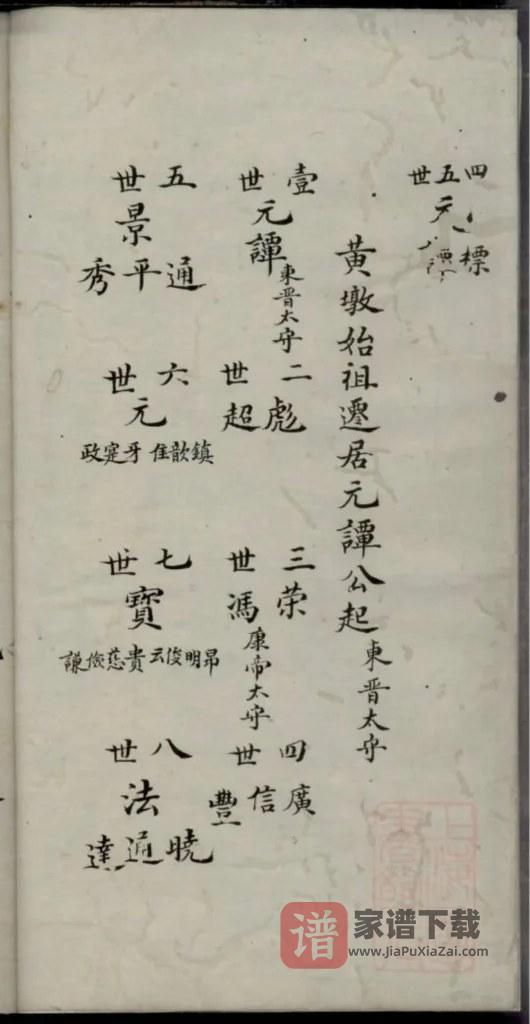 四五世
元
標
黃墩始祖遷居元譚公起
東晉太守
壹世
元譚
東晉太守
二世
彪超
三世
荣馮
康帝太守
四世
廣信豐
五世
景
通平秀
六世
元
鎮歙住牙寔政
七世
寶
昂明俊云貴慈儉謙
八世
法
曉通達
谱
家谱下载
www.JiaPuXiaZai.com